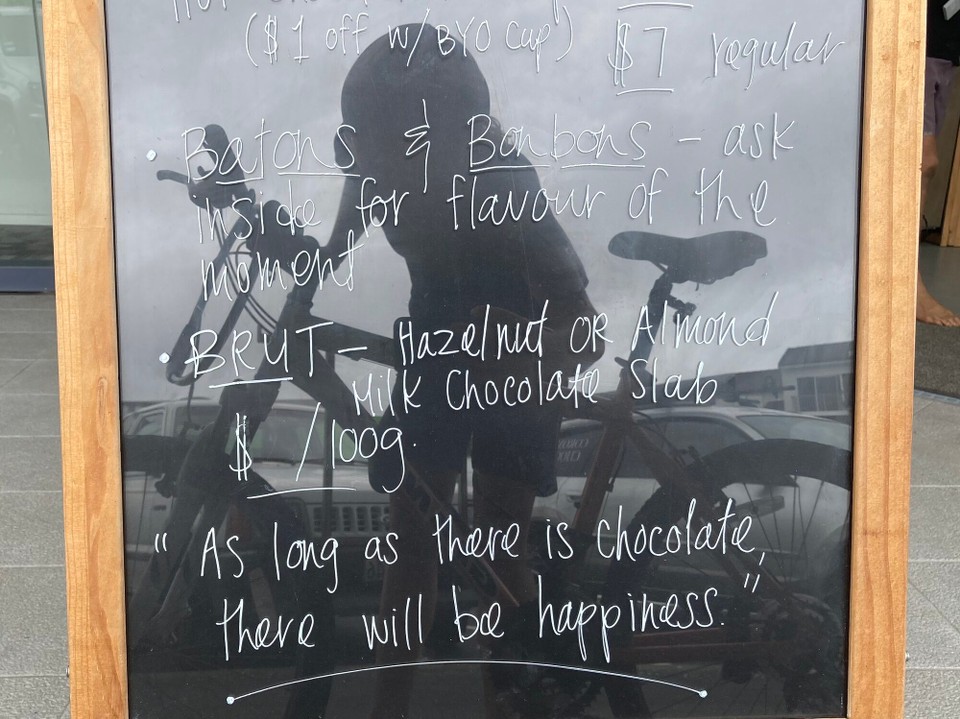 ($1 off w/BYO cup) $7 regular
• Batons & Bonbons – ask
inside for flavour of the
moment
• BRUT – Hazelnut OR Almond
Milk Chocolate Slab
$ /100g.
" As long as there is chocolate,
there will be happiness."